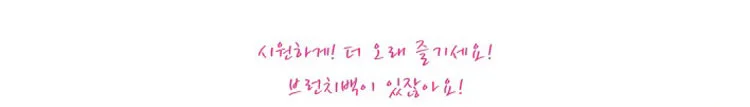 시원하게! 더 오래 즐기세요!
브런치백이 있잖아요!